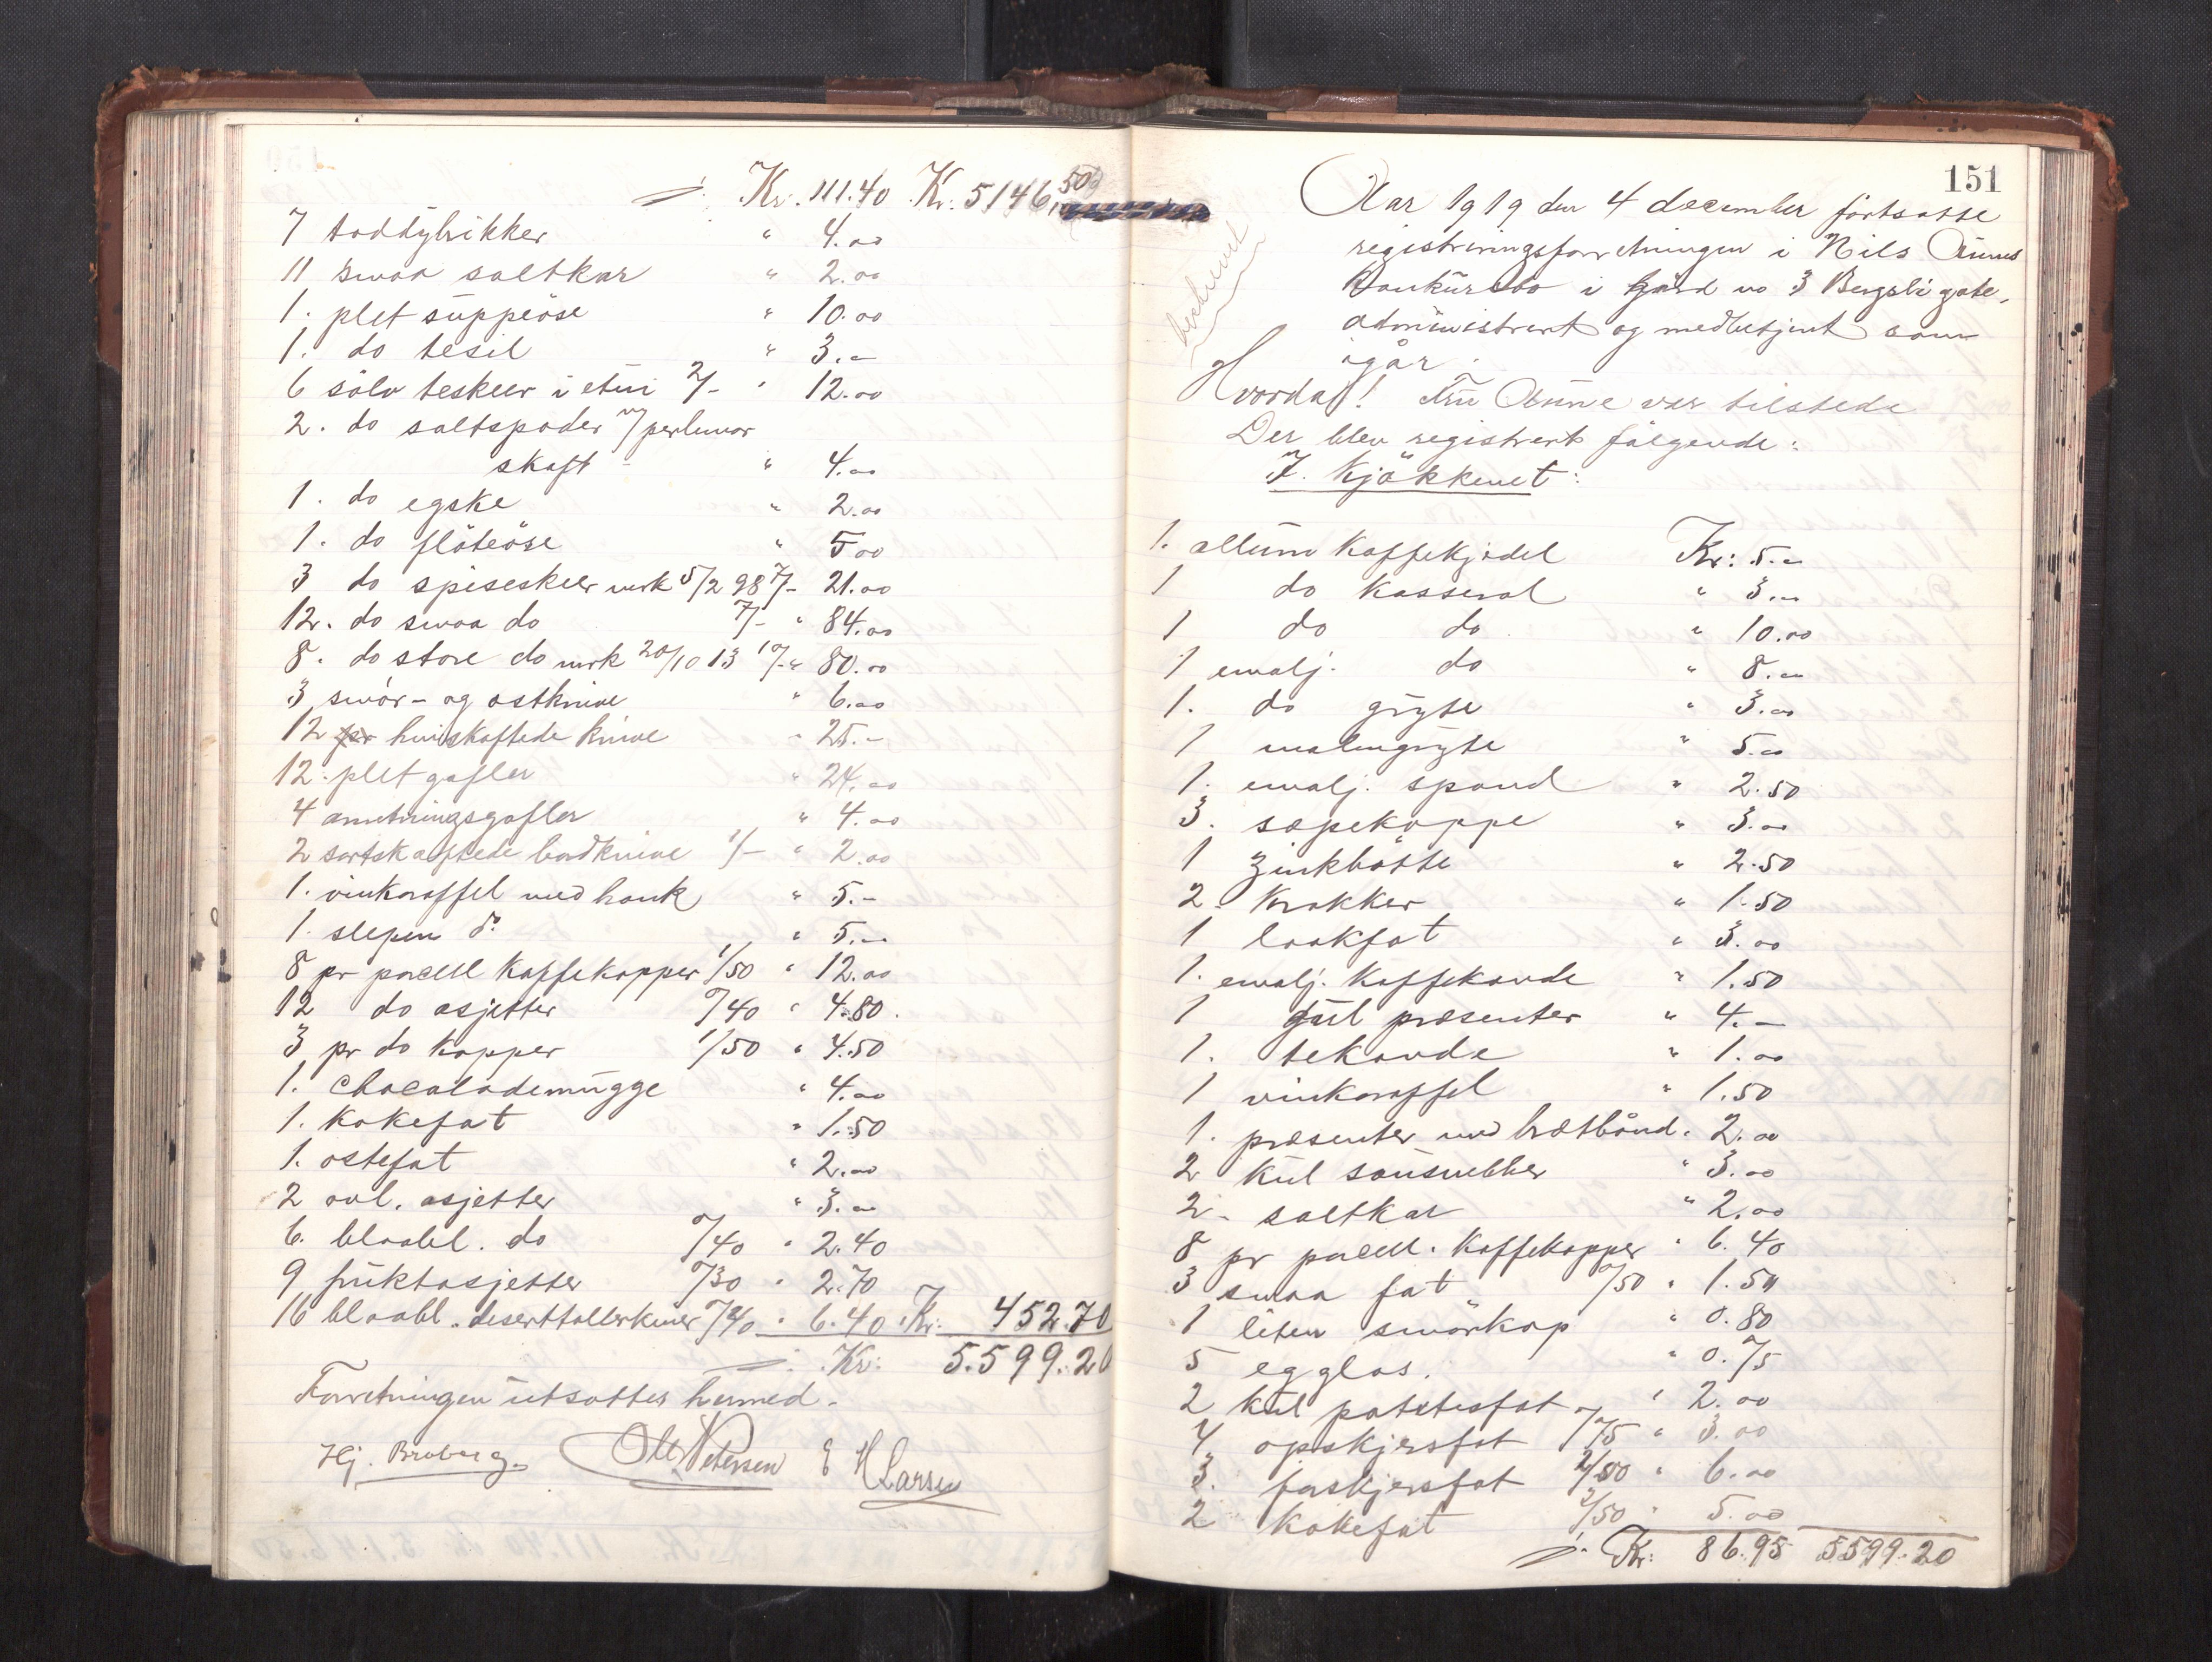 Kr. 111.40 Kr. 5146,50
7 toddybrikker " 4.00
11 smaa saltkar " 2.00
1. plet suppeöse " 10.00
1. do tesil " 3.—
6 sölv teskeer i etui 2/- " 12.00
2. do saltspader m/perlemor
skaft " 4.00
1. do egske " 2.00
1. do flöteöse " 5 00
3 do spiseskeer mrk 5/2 98 7/- 21.00
12. do smaa do 7/- " 84.00
8. do store do mrk 20/10 13 10/- " 80.00
3 smör- og ostknive " 6.00
12 hvidskaftede knive " 25.-
12. plet gafler " 24.00
4 anretningsgafler " 4.00
2 sortskaftede bordknive 1/- " 2.00
1. vinkaraffel med hank " 5.-
1. slepen do " 5.—
8 pr porcell kaffekopper 1/50 " 12.00
12 do asjetter 0/40 " 4.80.
3 pr do kopper 1/50 " 4.50
1. Chocolademugge " 4.00
1. kakefat " 1.50
1. ostefat " 2.00
2 avl. asjetter " 3.00
6. blaabl. do 0/40 " 2.40
9 fruktasjetter 0/30 " 2.70
16 blaabl. deserttallerkener 0/40 " 6.40 Kr: 452.70
Kr: 5.599.20
Forretningen utsattes hermed.
Hj. Broberg. Ole Petersen E H Larsen
151
Aar 1919 den 4 december fortsatte
registreringsforretningen i Nils Aunes
konkursbo i gård no 3 Bergsli gate,
administrert og medbetjent som
igår.
Hvorda! Fru Aune var tilstede
Der blev registrert fölgende:
I. Kjökkenet:
1. allum kaffekjedel Kr: 5.—
1 do kasserol " 3.—
1 do do " 10.00
1 emalj. do " 8.—
1. do gryte " 3.00
1 malmgryte " 5.00
1. emalj. spand " 2.50
3. sæpekoppe " 3.00
1 zinkbötte " 2.50
2. krakker " 1.50
1 laakfat " 3.00
1. emalj. kaffekande " 1.50
1 gul presenter " 4.—
1. tekande " 1.00
1 vinkaraffel " 1.50
1. presenter med brætbånd " 2.00
2 kul sausnebber " 3.00
2. saltkar " 2.00
8 pr porcell. kaffekopper " 6.40
3 smaa fat 0/50 " 1.50
1 liten smörkop " 0.80
5 egglas. " 0.75
2 kul potetesfat " 2.00
4 opskjersfat 0/75 " 3.00
3. forskjersfat 2/00 " 6.00
2 kakefat 2/50 " 5.00
Kr: 86.95 5599.20